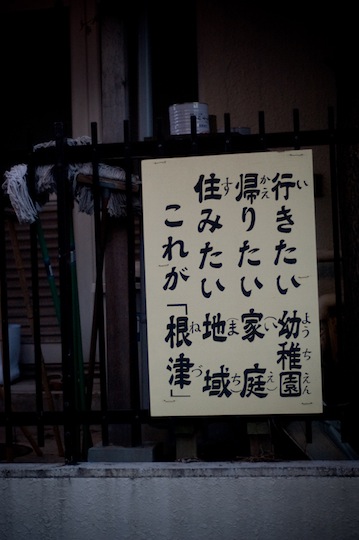 行きたい幼稚園
帰りたい家庭
住みたい地域
これが「根津」